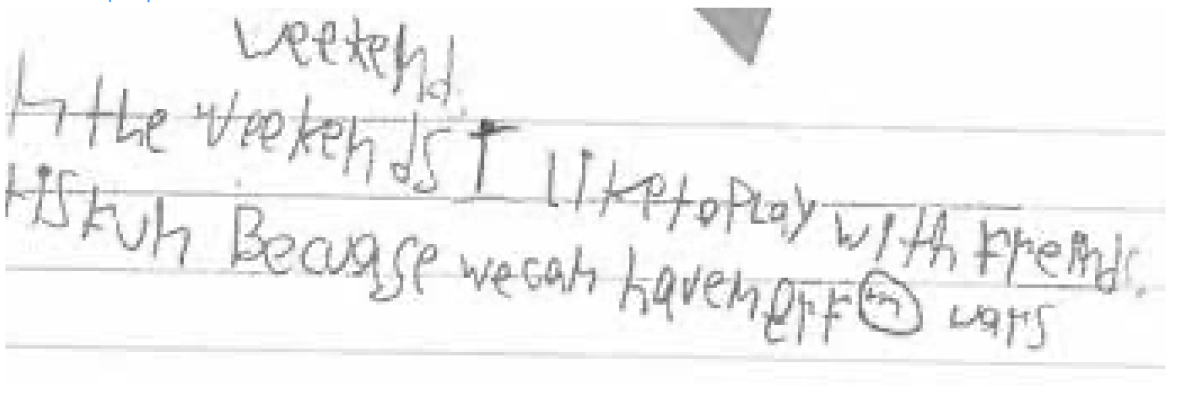 weekend.
In the weekends I like to Play with freinds.
itis fun Because we can have nerf wars